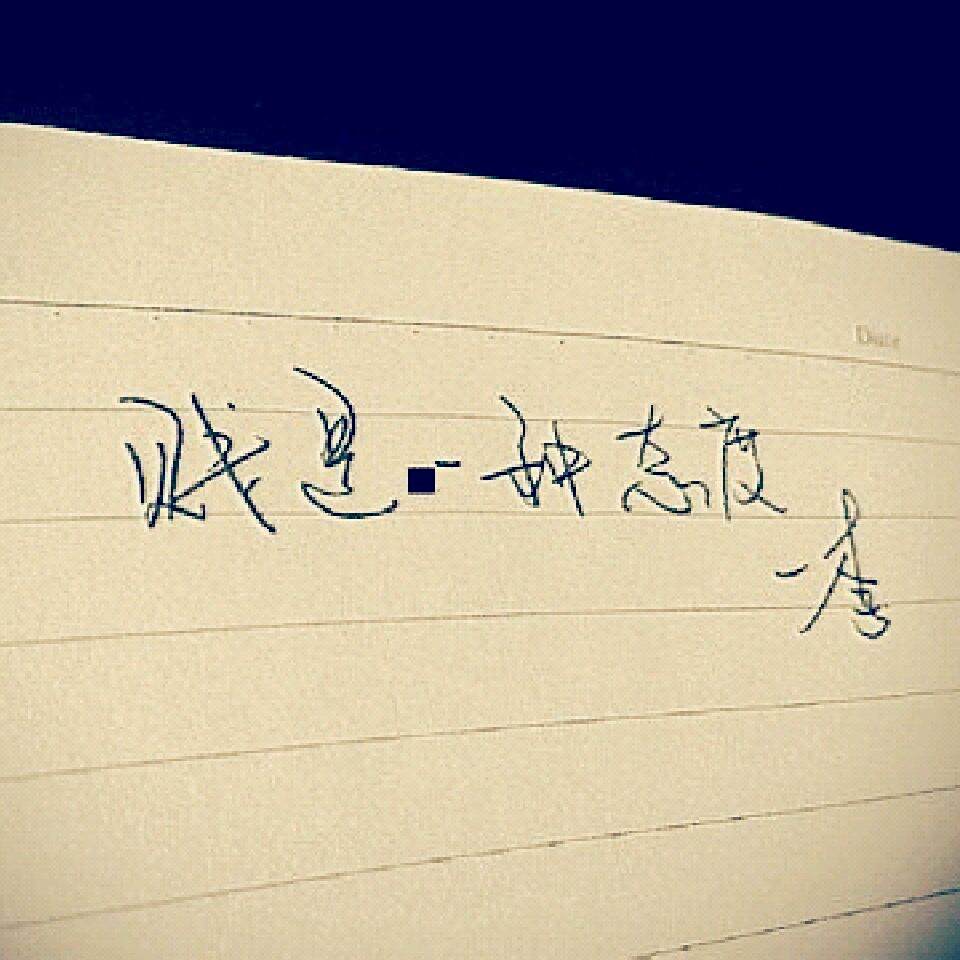 Date
贱是一种态度